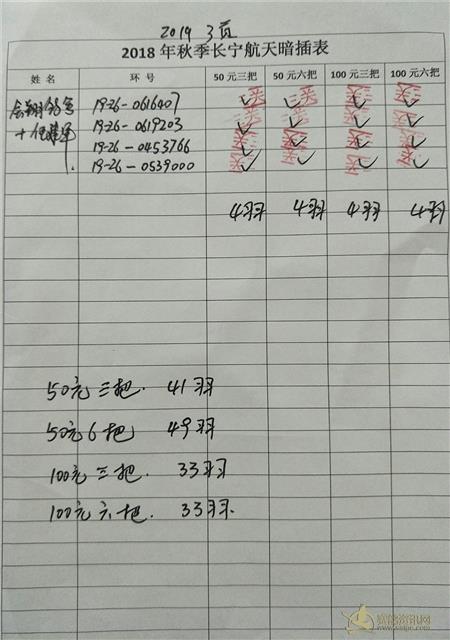 2019 3页
2018年秋季长宁航天暗插表
姓名 环号 50元三把 50元六把 100元三把 100元六把
19-26-0616407 ✓ ✓ ✓ ✓
19-26-0619203 ✓ ✓ ✓ ✓
19-26-0453766 ✓ ✓ ✓ ✓
19-26-0539000 ✓ ✓ ✓ ✓
4羽 4羽 4羽 4羽
50元三把. 41羽
50元6把 49羽
100元三把. 33羽
100元六把. 33羽.